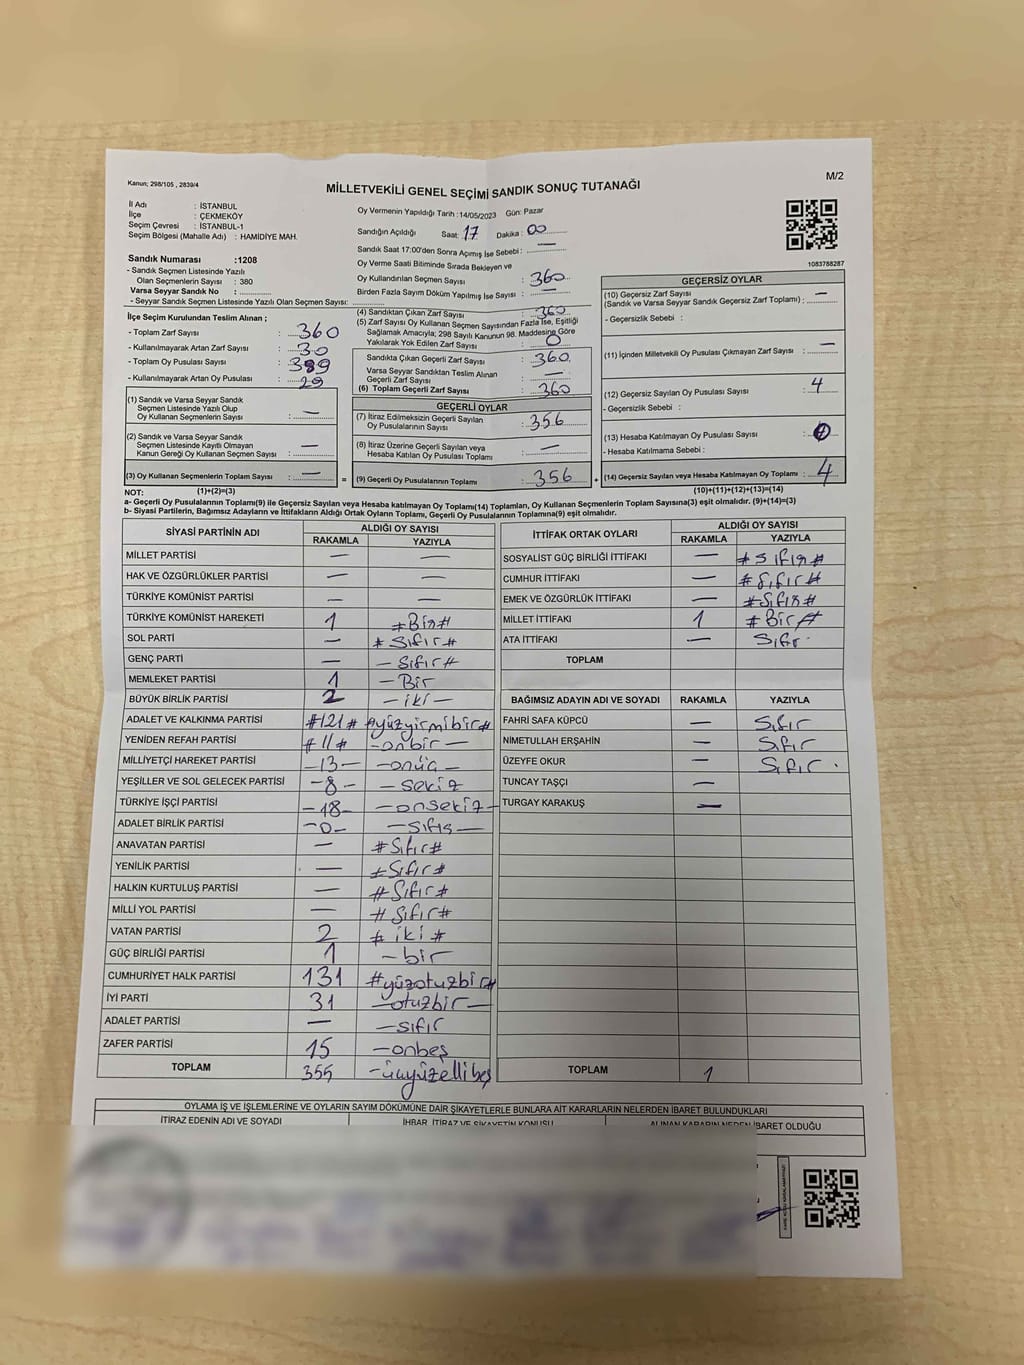 Kanun; 298/105 , 2839/4
MİLLETVEKİLİ GENEL SEÇİMİ SANDIK SONUÇ TUTANAĞI
M/2
İl Adı : İSTANBUL
İlçe : ÇEKMEKÖY
Seçim Çevresi : İSTANBUL-1
Seçim Bölgesi (Mahalle Adı) : HAMİDİYE MAH.
Oy Vermenin Yapıldığı Tarih :14/05/2023 Gün: Pazar
Sandığın Açıldığı Saat: 17 Dakika : 00
Sandık Saat 17:00'den Sonra Açımış İse Sebebi : —
Oy Verme Saati Bitiminde Sırada Bekleyen ve
Oy Kullandırılan Seçmen Sayısı : 360
Birden Fazla Sayım Döküm Yapılmış İse Sayısı : —
1083788287
Sandık Numarası :1208
- Sandık Seçmen Listesinde Yazılı
Olan Seçmenlerin Sayısı : 380
Varsa Seyyar Sandık No :
- Seyyar Sandık Seçmen Listesinde Yazılı Olan Seçmen Sayısı:
İlçe Seçim Kurulundan Teslim Alınan ;
- Toplam Zarf Sayısı : 360
- Kullanılmayarak Artan Zarf Sayısı : 30
- Toplam Oy Pusulası Sayısı : 389
- Kullanılmayarak Artan Oy Pusulası : 29
(1) Sandık ve Varsa Seyyar Sandık
Seçmen Listesinde Yazılı Olup
Oy Kullanan Seçmenlerin Sayısı : —
(2) Sandık ve Varsa Seyyar Sandık
Seçmen Listesinde Kayıtlı Olmayan
Kanun Gereği Oy Kullanan Seçmen Sayısı : —
(3) Oy Kullanan Seçmenlerin Toplam Sayısı : —
(1)+(2)=(3)
(4) Sandıktan Çıkan Zarf Sayısı : 360
(5) Zarf Sayısı Oy Kullanan Seçmen Sayısından Fazla İse, Eşitliği
Sağlamak Amacıyla; 298 Sayılı Kanunun 98. Maddesine Göre
Yakılarak Yok Edilen Zarf Sayısı : 0
Sandıkta Çıkan Geçerli Zarf Sayısı : 360
Varsa Seyyar Sandıktan Teslim Alınan
Geçerli Zarf Sayısı : —
(6) Toplam Geçerli Zarf Sayısı : 360
GEÇERLİ OYLAR
(7) İtiraz Edilmeksizin Geçerli Sayılan
Oy Pusulalarının Sayısı : 356
(8) İtiraz Üzerine Geçerli Sayılan veya
Hesaba Katılan Oy Pusulası Toplamı : —
= (9) Geçerli Oy Pusulalarının Toplamı : 356
GEÇERSİZ OYLAR
(10) Geçersiz Zarf Sayısı
(Sandık ve Varsa Seyyar Sandık Geçersiz Zarf Toplamı) : —
- Geçersizlik Sebebi :
(11) İçinden Milletvekili Oy Pusulası Çıkmayan Zarf Sayısı : —
(12) Geçersiz Sayılan Oy Pusulası Sayısı : 4
- Geçersizlik Sebebi :
(13) Hesaba Katılmayan Oy Pusulası Sayısı : 0
- Hesaba Katılmama Sebebi :
+ (14) Geçersiz Sayılan veya Hesaba Katılmayan Oy Toplamı : 4
(10)+(11)+(12)+(13)=(14)
NOT:
a- Geçerli Oy Pusulalarının Toplamı(9) ile Geçersiz Sayılan veya Hesaba katılmayan Oy Toplamı(14) Toplamları, Oy Kullanan Seçmenlerin Toplam Sayısına(3) eşit olmalıdır. (9)+(14)=(3)
b- Siyasi Partilerin, Bağımsız Adayların ve İttifakların Aldığı Ortak Oyların Toplamı, Geçerli Oy Pusulalarının Toplamına(9) eşit olmalıdır.
SİYASİ PARTİNİN ADI ALDIĞI OY SAYISI
RAKAMLA YAZIYLA
MİLLET PARTİSİ — —
HAK VE ÖZGÜRLÜKLER PARTİSİ — —
TÜRKİYE KOMÜNİST PARTİSİ — —
TÜRKİYE KOMÜNİST HAREKETİ 1 #Bir#
SOL PARTİ — #Sıfır#
GENÇ PARTİ — -Sıfır#
MEMLEKET PARTİSİ 1 -Bir
BÜYÜK BİRLİK PARTİSİ 2 -iki-
ADALET VE KALKINMA PARTİSİ #121# #yüzyirmibir#
YENİDEN REFAH PARTİSİ #11# -onbir-
MİLLİYETÇİ HAREKET PARTİSİ -13- -onüç-
YEŞİLLER VE SOL GELECEK PARTİSİ -8- -sekiz
TÜRKİYE İŞÇİ PARTİSİ -18- -onsekiz-
ADALET BİRLİK PARTİSİ -0- -sıfır-
ANAVATAN PARTİSİ — #Sıfır#
YENİLİK PARTİSİ — #Sıfır#
HALKIN KURTULUŞ PARTİSİ — #Sıfır#
MİLLİ YOL PARTİSİ — #Sıfır#
VATAN PARTİSİ 2 #iki#
GÜÇ BİRLİĞİ PARTİSİ 1 -bir
CUMHURİYET HALK PARTİSİ 131 #yüzotuzbir#
İYİ PARTİ 31 -otuzbir-
ADALET PARTİSİ — -sıfır
ZAFER PARTİSİ 15 -onbeş
TOPLAM 355 -üçyüzellibeş
İTTİFAK ORTAK OYLARI ALDIĞI OY SAYISI
RAKAMLA YAZIYLA
SOSYALİST GÜÇ BİRLİĞİ İTTİFAKI — #Sıfır#
CUMHUR İTTİFAKI — #Sıfır#
EMEK VE ÖZGÜRLÜK İTTİFAKI — #Sıfır#
MİLLET İTTİFAKI 1 #Bir#
ATA İTTİFAKI — Sıfır
TOPLAM
BAĞIMSIZ ADAYIN ADI VE SOYADI RAKAMLA YAZIYLA
FAHRİ SAFA KÜPCÜ — Sıfır
NİMETULLAH ERŞAHİN — Sıfır
ÜZEYFE OKUR — Sıfır.
TUNCAY TAŞÇI —
TURGAY KARAKUŞ —
TOPLAM 1
OYLAMA İŞ VE İŞLEMLERİNE VE OYLARIN SAYIM DÖKÜMÜNE DAİR ŞİKAYETLERLE BUNLARA AİT KARARLARIN NELERDEN İBARET BULUNDUKLARI
İTİRAZ EDENİN ADI VE SOYADI İHBAR, İTİRAZ VE ŞİKAYETİN KONUSU ALINAN KARARIN NEDEN İBARET OLDUĞU